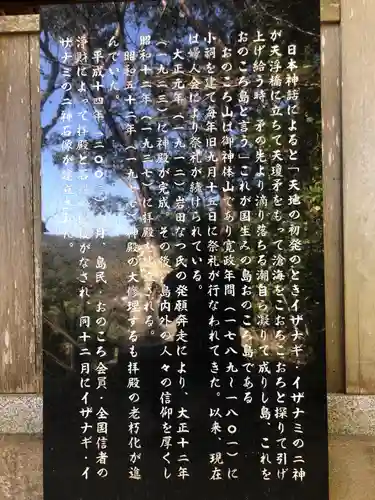 日本神話によると「天地の初発のときイザナギ・イザナミの二神
が天浮橋に立ちて天瓊矛をもって滄海をこおろこおろと探りて引げ
上げ給う時、矛の先より滴り落ちる潮自ら凝りて成りし島、これを
おのころ島と言う」これが国生みの島おのころ島である
おのころ山は御神体山であり寛政年間(一七八九〜一八〇一)に
小祠を建て毎年旧九月十五日に祭礼が行なわれてきた。以来、現在
は婦人会により祭礼が続けられている。
大正元年(一九一二)岩田なつ氏の発願奔走により、大正十二年
(一九二三)に神殿が完成。その後、島内外の人々の信仰を厚くし
昭和十二年(一九三七)に拝殿が される。
昭和五十二年(一九 )神殿の大修理するも拝殿の老朽化が進
んでいた。
平成十四年(二〇〇 月、島民・おのころ会員・全国信者の
浄財によって拝殿と がなされ、同十二月にイザナギ・イ
ザナミの二神石像が建立された。